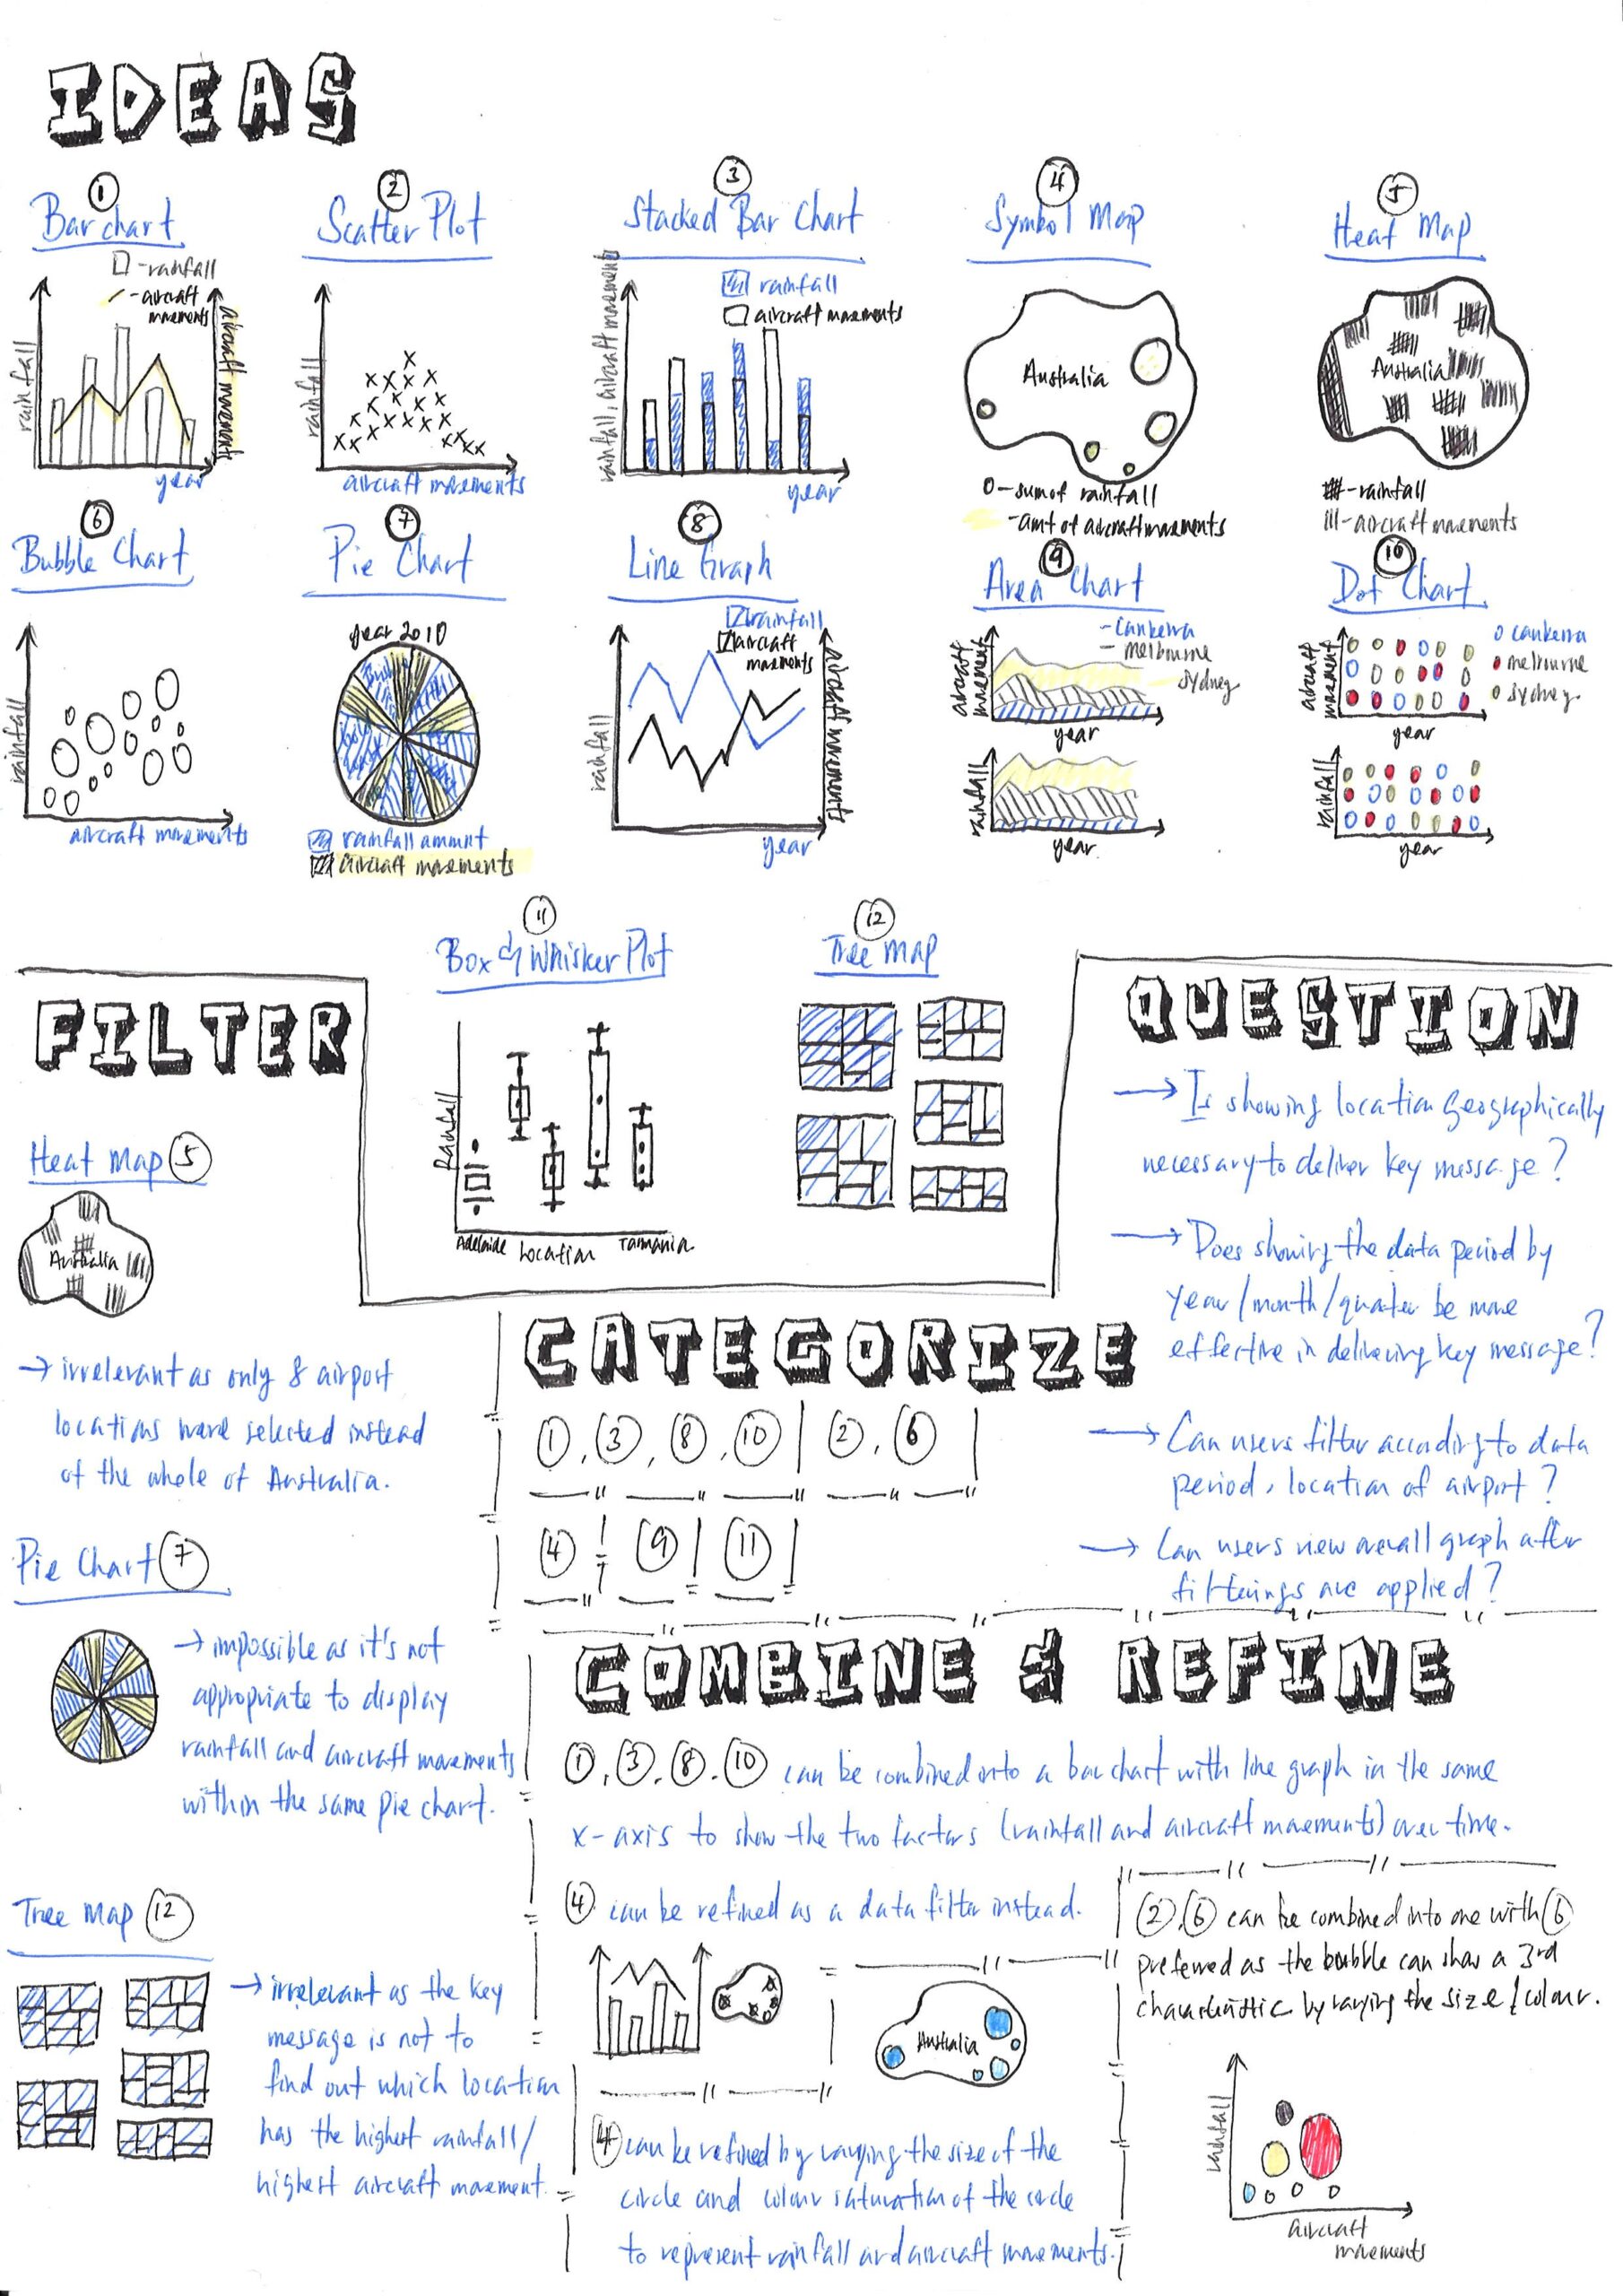 IDEAS
①
Bar chart
-rainfall
-aircraft
movements
rainfall
aircraft movements
year
②
Scatter Plot
rainfall
aircraft movements
③
Stacked Bar Chart
rainfall
aircraft movements
rainfall, aircraft movements
year
④
Symbol Map
Australia
O-sum of rainfall
-amt of aircraft movements
⑤
Heat Map
Australia
-rainfall
-aircraft movements
⑥
Bubble Chart
rainfall
aircraft movements
⑦
Pie Chart
year 2010
rainfall amount
aircraft movements
⑧
Line Graph
rainfall
aircraft
movements
rainfall
aircraft movements
year
⑨
Area Chart
- Canberra
- melbourne
- Sydney
aircraft
movement
year
rainfall
year
⑩
Dot Chart
canberra
melbourne
sydney
aircraft
movement
year
rainfall
year
⑪
Box & Whisker Plot
Rainfall
Adelaide Location Tasmania
⑫
Tree Map
FILTER
Heat Map ⑤
Australia
→ irrelevant as only 8 airport
locations were selected instead
of the whole of Australia.
Pie Chart ⑦
→ impossible as it's not
appropriate to display
rainfall and aircraft movements
within the same pie chart.
Tree Map ⑫
→ irrelevant as the key
message is not to
find out which location
has the highest rainfall/
highest aircraft movement.
QUESTION
→ Is showing location geographically
necessary to deliver key message?
→ Does showing the data period by
year/month/quater be more
effective in delivering key message?
→ Can users filter according to data
period, location of airport?
→ Can users view overall graph after
filterings are applied?
CATEGORIZE
①, ③, ⑧, ⑩ | ②, ⑥
④ ⑨ ⑪
COMBINE & REFINE
①, ③, ⑧, ⑩ can be combined into a bar chart with line graph in the same
x-axis to show the two factors (rainfall and aircraft movements) over time.
④ can be refined as a data filter instead.
Australia
④ can be refined by varying the size of the
circle and colour saturation of the circle
to represent rainfall and aircraft movements.
②, ⑥ can be combined into one with ⑥
preferred as the bubble can show a 3rd
characteristic by varying the size/colour.
rainfall
aircraft
movements